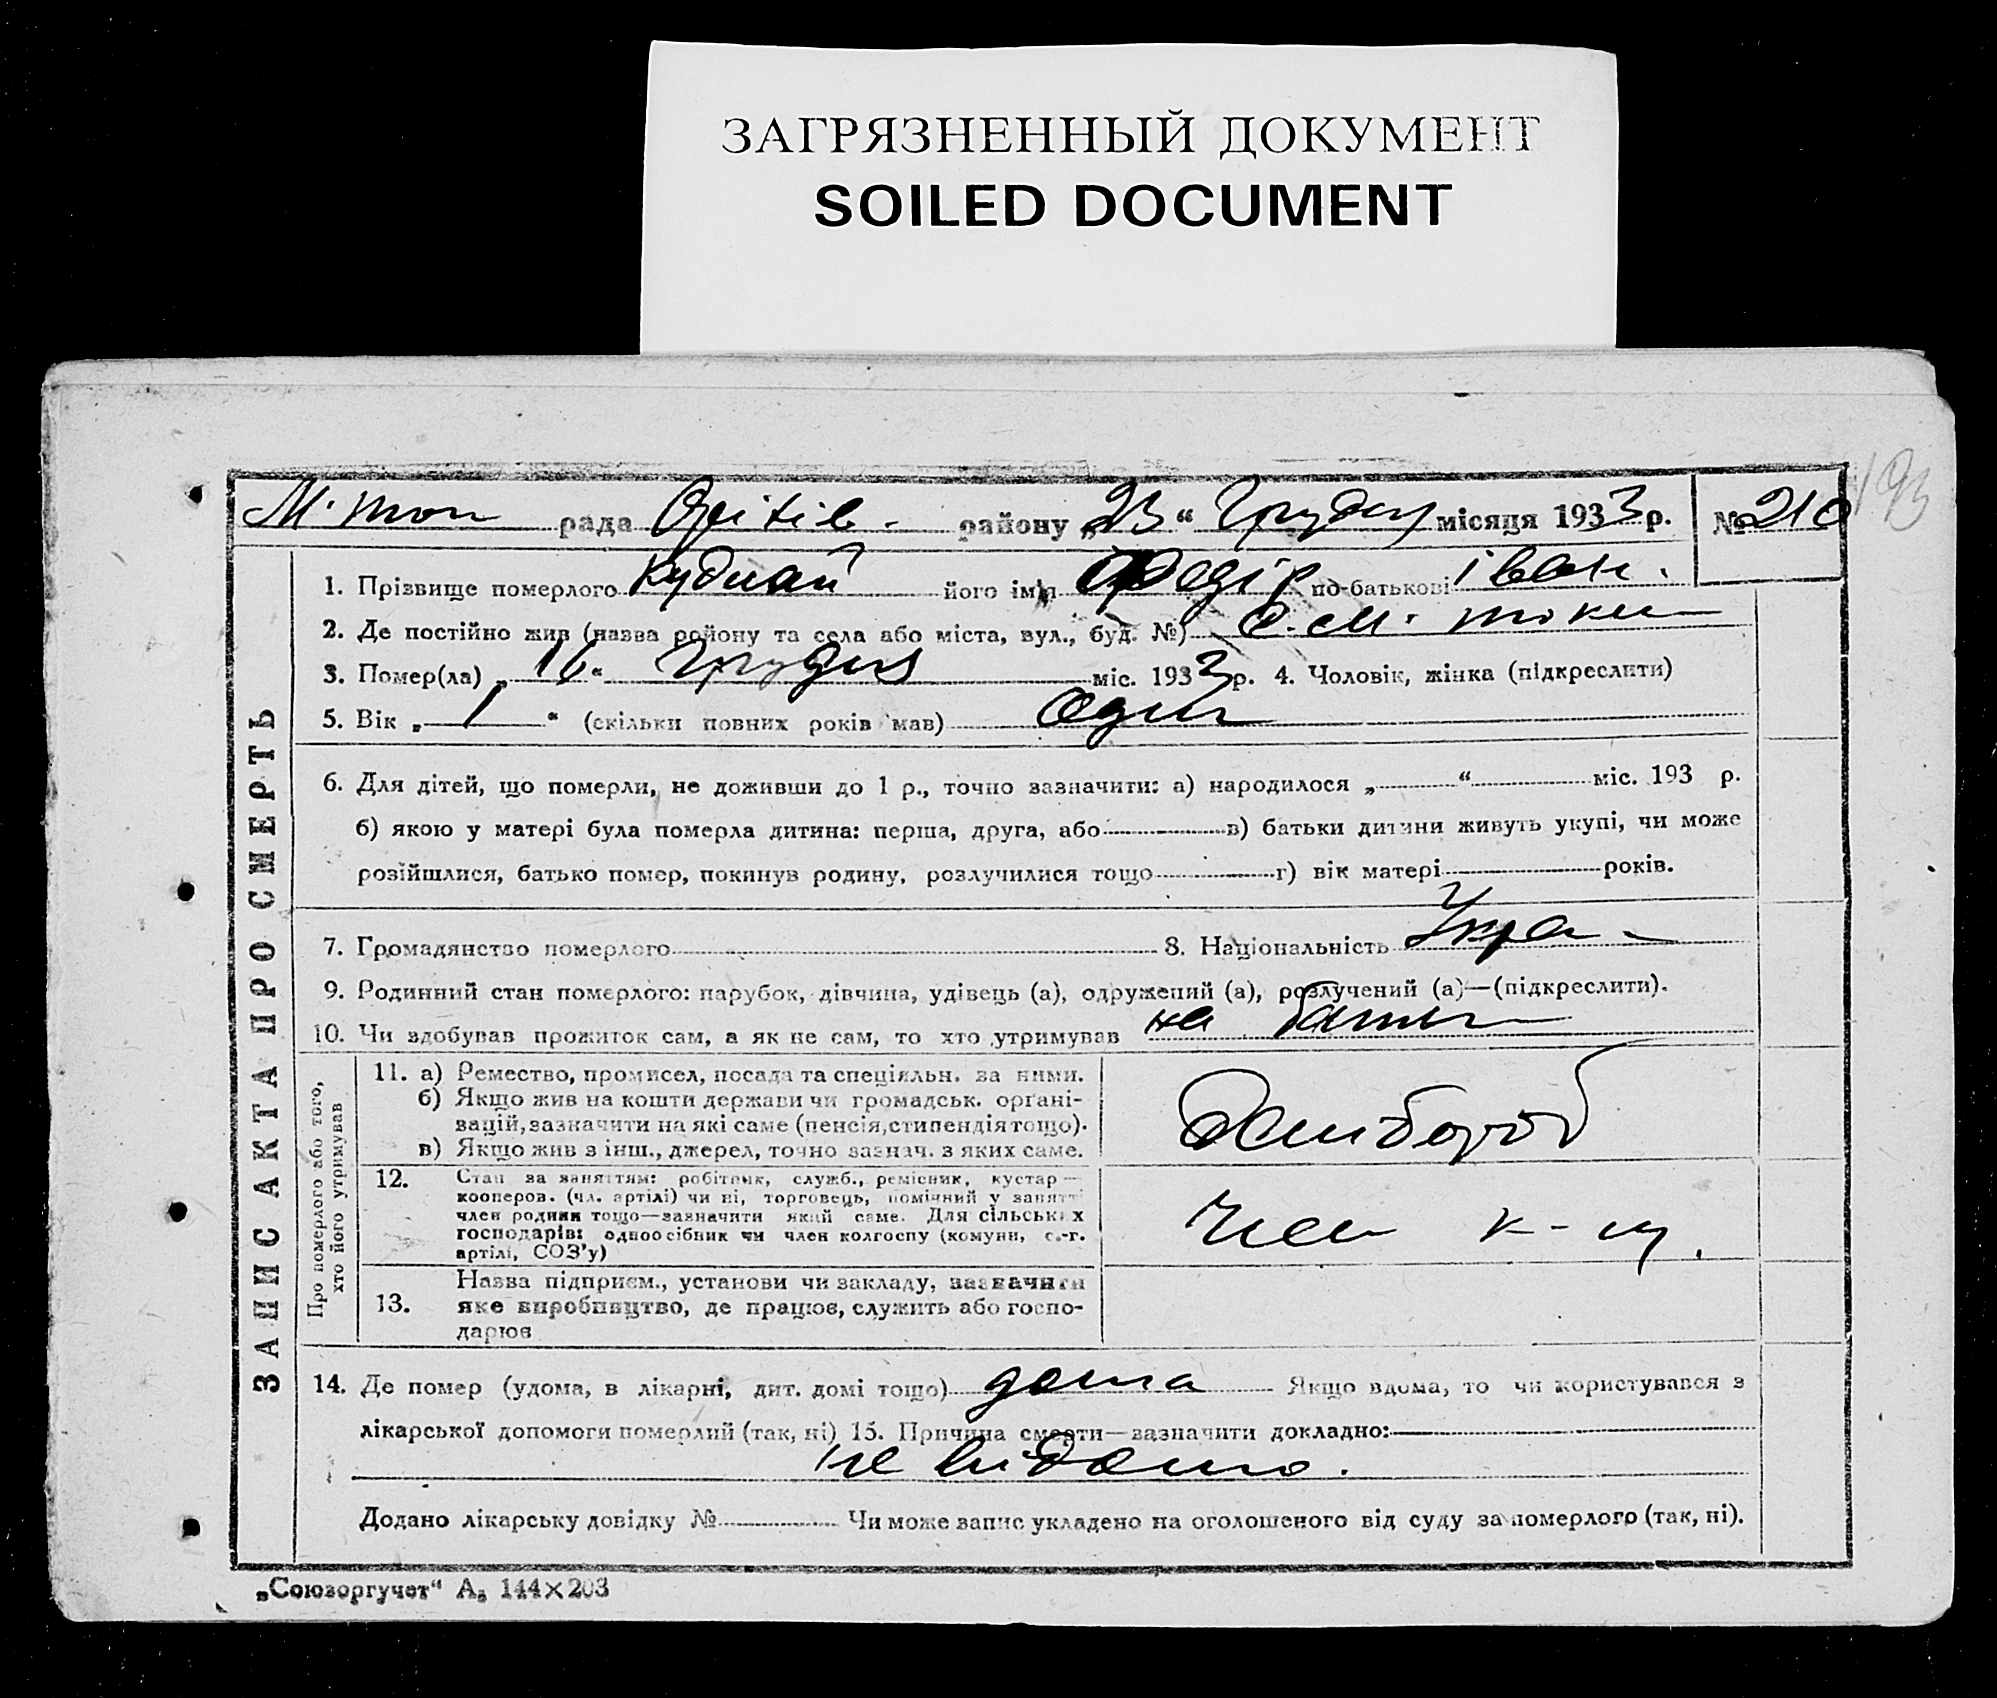 ЗАГРЯЗНЕННЫЙ ДОКУМЕНТ
SOILED DOCUMENT
193
М. Ток рада Оріхів. району „23“ Грудня місяця 1933 р. № 210
ЗАПИС АКТА ПРО СМЕРТЬ
1. Прізвище померлого Кудлай його ім'я Федір по-батькові Іван.
2. Де постійно жив (назва району та села або міста, вул., буд. №) с. М. Токм
3. Помер(ла) „16“ Грудня міс. 1933 р. 4. Чоловік, жінка (підкреслити)
5. Вік „1“ (скільки повних років мав) Один
6. Для дітей, що померли, не доживши до 1 р., точно зазначити: а) народилося „ “ міс. 193 р.
б) якою у матері була померла дитина: перша, друга, або в) батьки дитини живуть укупі, чи може
розійшлися, батько помер, покинув родину, розлучилися тощо г) вік матері років.
7. Громадянство померлого 8. Національність Укра
9. Родинний стан померлого: парубок, дівчина, удівець (а), одружений (а), розлучений (а)—(підкреслити).
10. Чи здобував прожиток сам, а як не сам, то хто утримував на батьк
Про померлого або того, хто його утримував
11. а) Ремество, промисел, посада та спеціяльн. за ними.
б) Якщо жив на кошти держави чи громадськ. органі-
зацій, зазначити на які саме (пенсія, стипендія тощо).
в) Якщо жив з інш., джерел, точно зазнач. з яких саме.
Хлибороб
12. Стан за заняттям: робітник, служб., ремісник, кустар—
кооперов. (чл. артілі) чи ні, торговець, помічний у занятті
член родини тощо—зазначити який саме. Для сільських
господарів: одноосібник чи член колгоспу (комуни, с.-г.
артілі, СОЗ'у)
Член к-пу.
13. Назва підприєм., установи чи закладу, зазначити
яке виробництво, де працює, служить або госпо-
дарює
14. Де помер (удома, в лікарні, дит. домі тощо) дома Якщо вдома, то чи користувався з
лікарської допомоги померлий (так, ні) 15. Причина смерти—зазначити докладно:
не відомо.
Додано лікарську довідку № Чи може запис укладено на оголошеного від суду за померлого (так, ні).
„Союзоргучет“ А5 144×203